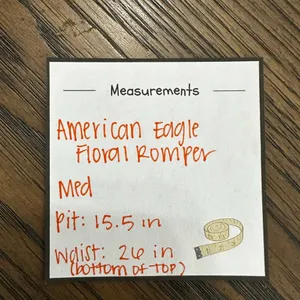 Measurements
American Eagle
Floral Romper
Med
Pit: 15.5 in
Waist: 26 in
(bottom of top)